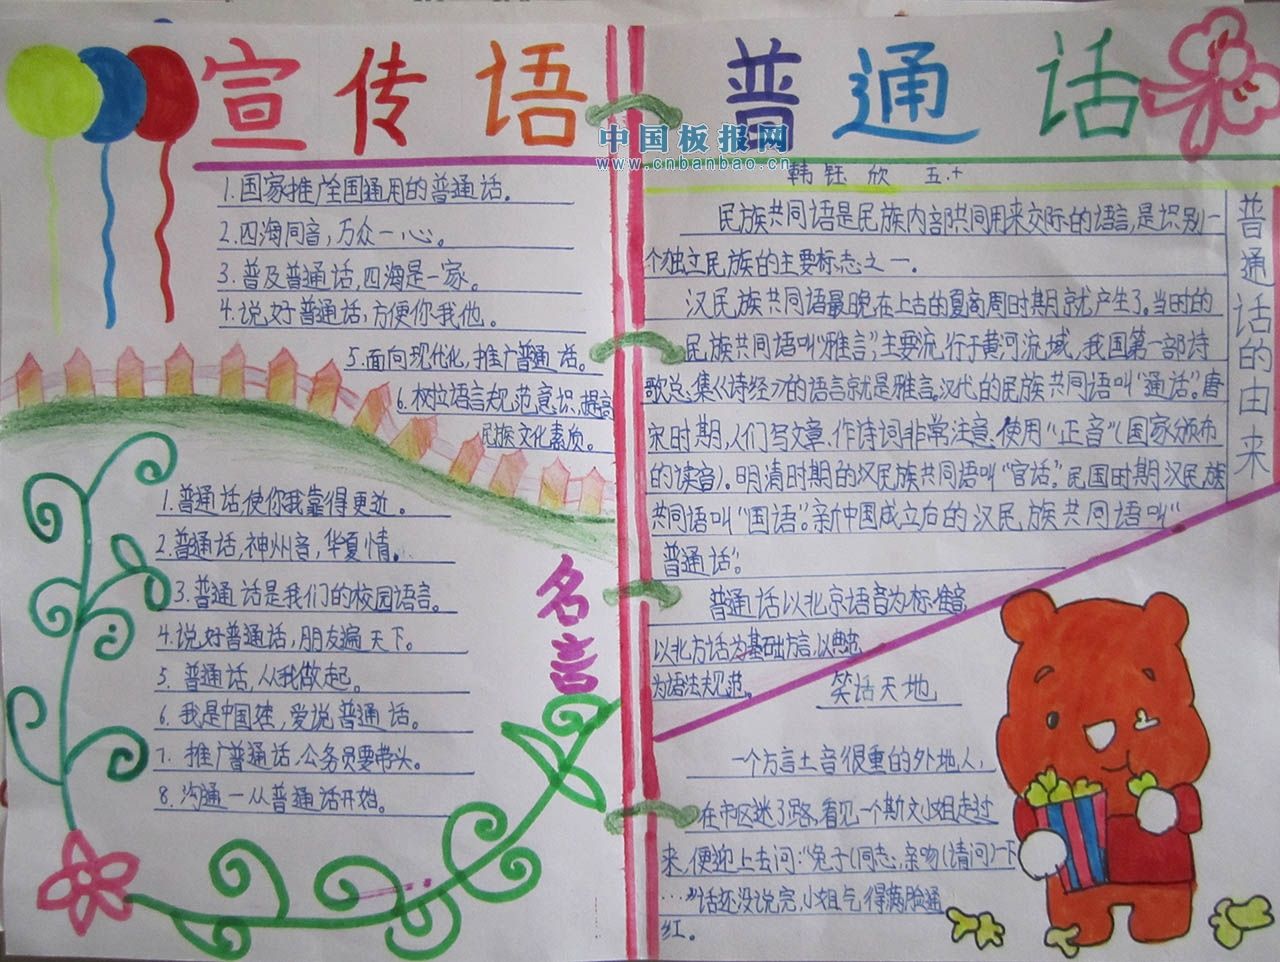 宣传语
普通话
中国板报网
www.cnbanbao.cn
韩钰欣 五.十
1.国家推广全国通用的普通话。
2.四海同音,万众一心。
3.普及普通话,四海是一家。
4.说好普通话,方便你我他。
5.面向现代化,推广普通话。
6.树立语言规范意识,提高
民族文化素质。
名言
1.普通话,使你我靠得更近。
2.普通话,神州音,华夏情。
3.普通话是我们的校园语言。
4.说好普通话,朋友遍天下。
5.普通话,从我做起。
6.我是中国娃,爱说普通话。
7.推广普通话,公务员要带头。
8.沟通一从普通话开始。
普通话的由来
民族共同语是民族内部共同用来交际的语言,是识别一
个独立民族的主要标志之一。
汉民族共同语最晚在上古的夏商周时期就产生了。当时的
民族共同语叫“雅言”,主要流行于黄河流域,我国第一部诗
歌总集《诗经》的语言就是雅言。汉代的民族共同语叫“通话”。唐
宋时期,人们写文章、作诗词非常注意使用“正音”(国家颁布
的读音)。明清时期的汉民族共同语叫“官话”。民国时期汉民族
共同语叫“国语”。新中国成立后的汉民族共同语叫“
普通话”。
普通话以北京语音为标准音
以北方话为基础方言,以典范
为语法规范。
笑话天地
一个方言土音很重的外地人,
在市区迷了路,看见一个斯文小姐走过
来,便迎上去问:“兔子(同志),亲吻(请问)一下
……”话还没说完,小姐气得满脸通
红。